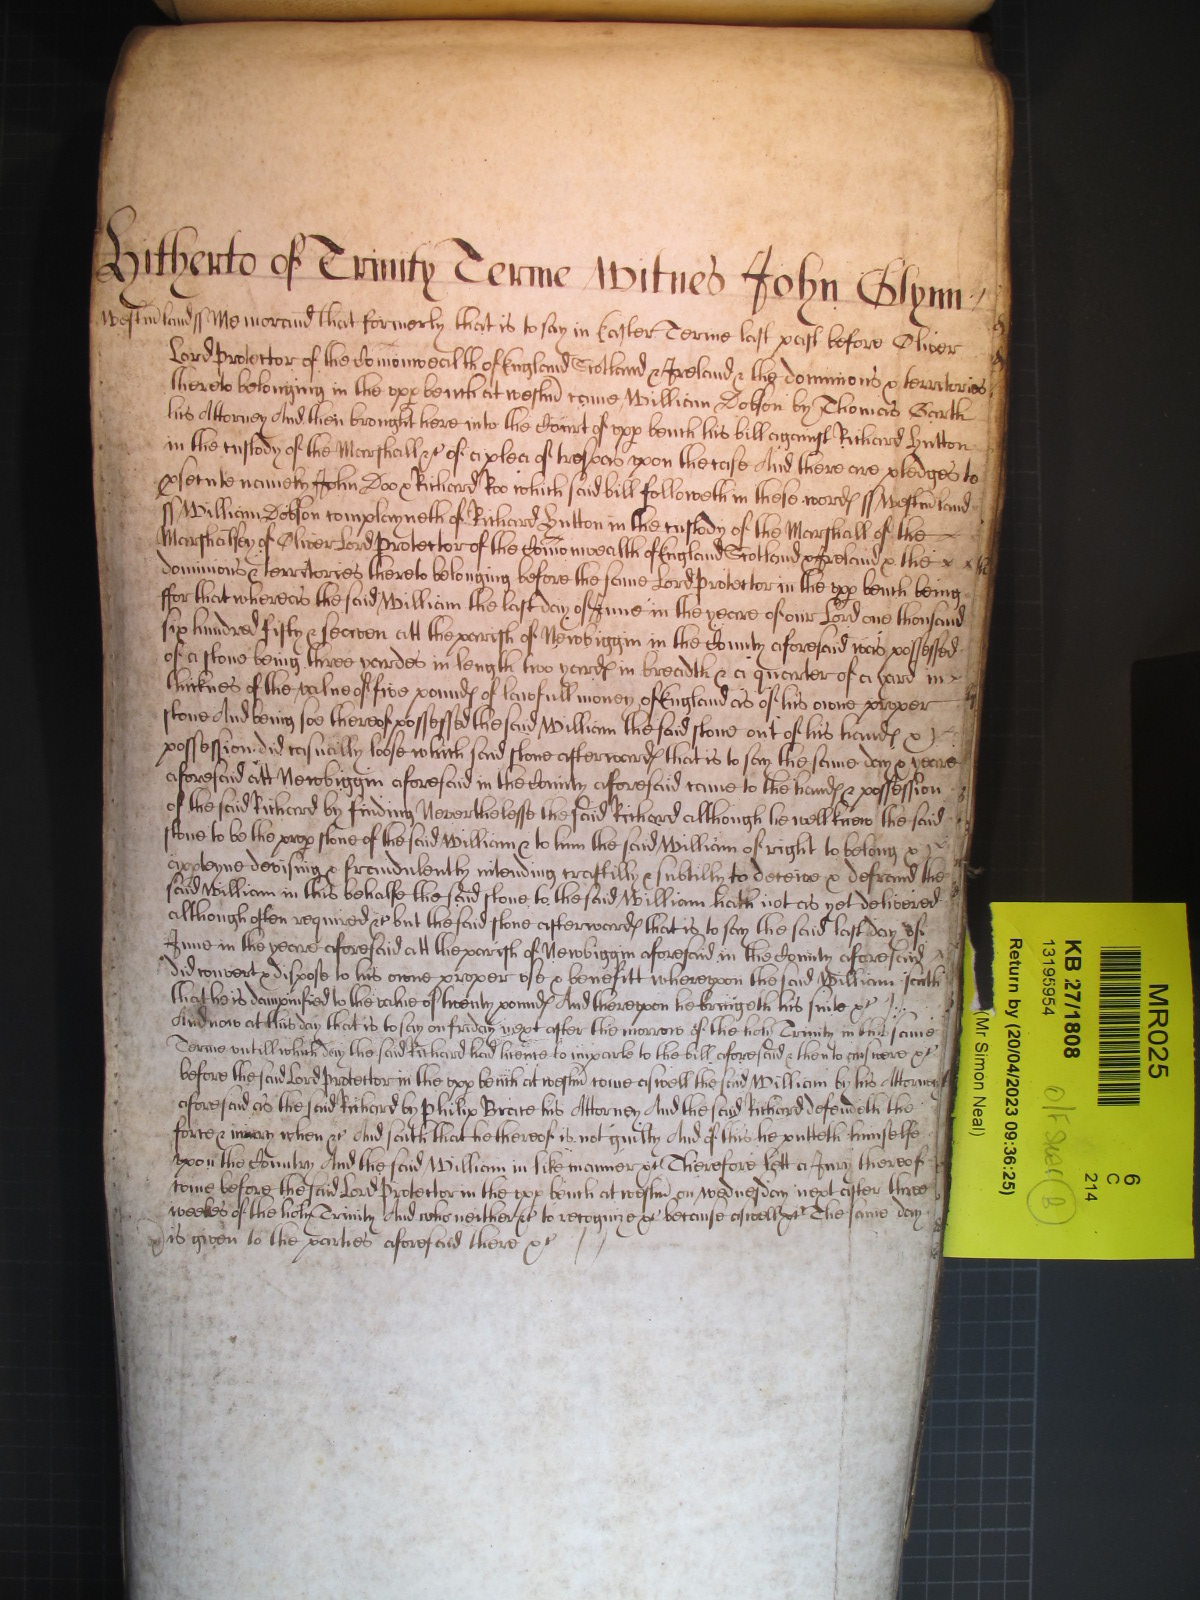 Hitherto of Trinity Terme Witnes John Glynn
Westmland ss Memorand that formerly that is to say in Easter Terme last past before Oliver
Lord Protector of the Comonwealth of England Scotland & Ireland & the dominions & territories
thereto belonging in the upp bench at westm came William Dobson by Thomas Garth
his Attorney And then brought here into the Court of upp bench his bill against Richard Hutton
in the custody of the Marshall &c of a plea of trespas upon the case And there are pledges to
psecute namely John Doo & Richard Roo which said bill followeth in these words ss Westmland
ss William Dobson complayneth of Richard Hutton in the custody of the Marshall of the
Marshalsey of Oliver Lord Protector of the Comonwealth of England Scotland & Ireland & the
dominions & territories thereto belonging before the same Lord Protector in the upp bench being
ffor that whereas the said William the last day of June in the yeare of our Lord one thousand
six hundred fifty & seaven att the parish of Newbiggin in the County aforesaid was possessed
of a stone being three yardes in length two yards in breadth & a quarter of a yard in
thicknes of the value of five pounds of lawfull money of England as of his owne proper
stone And being soe thereof possessed the said William the said stone out of his hands &
possession did casually loose which said stone afterwards that is to say the same day & yeare
aforesaid att Newbiggin aforesaid in the County aforesaid came to the hands & possession
of the said Richard by finding Neverthelesse the said Richard although he well knew the said
stone to be the prop stone of the said William & to him the said William of right to belong &
apperteyne devising & fraudulently intending craftily & subtilly to deceive & defraud the
said William in this behalfe the said stone to the said William hath not as yet delivered
although often required &c but the said stone afterwards that is to say the said last day of
June in the yeare aforesaid att the parish of Newbiggin aforesaid in the County aforesaid
did convert & dispose to his owne proper use & benefitt whereupon the said William saith
that he is dampnified to the value of twenty pounds And thereupon he bringeth his suite &c
And now at this day that is to say on friday next after the morrow of the holy Trinity in this same
Terme untill which day the said Richard had licence to imparle to the bill aforesaid & then to answere &c
before the said Lord Protector in the upp bench at westm come aswell the said William by his Attorney
aforesaid as the said Richard by Philip Brace his Attorney And the said Richard defendeth the
force & iniury when &c And saith that he thereof is not guilty And of this he putteth himselfe
upon the Country And the said William in like manner &c Therefore lett a Jury thereof
come before the said Lord Protector in the upp bench at westm on wednesday next after three
weekes of the holy Trinity And who neither &c to recognize &c because aswell &c The same day
is given to the parties aforesaid there &c
MR025
KB 27/1808
13195954
6
C
214
Return by (20/04/2023 09:36:25)
(Mr Simon Neal)